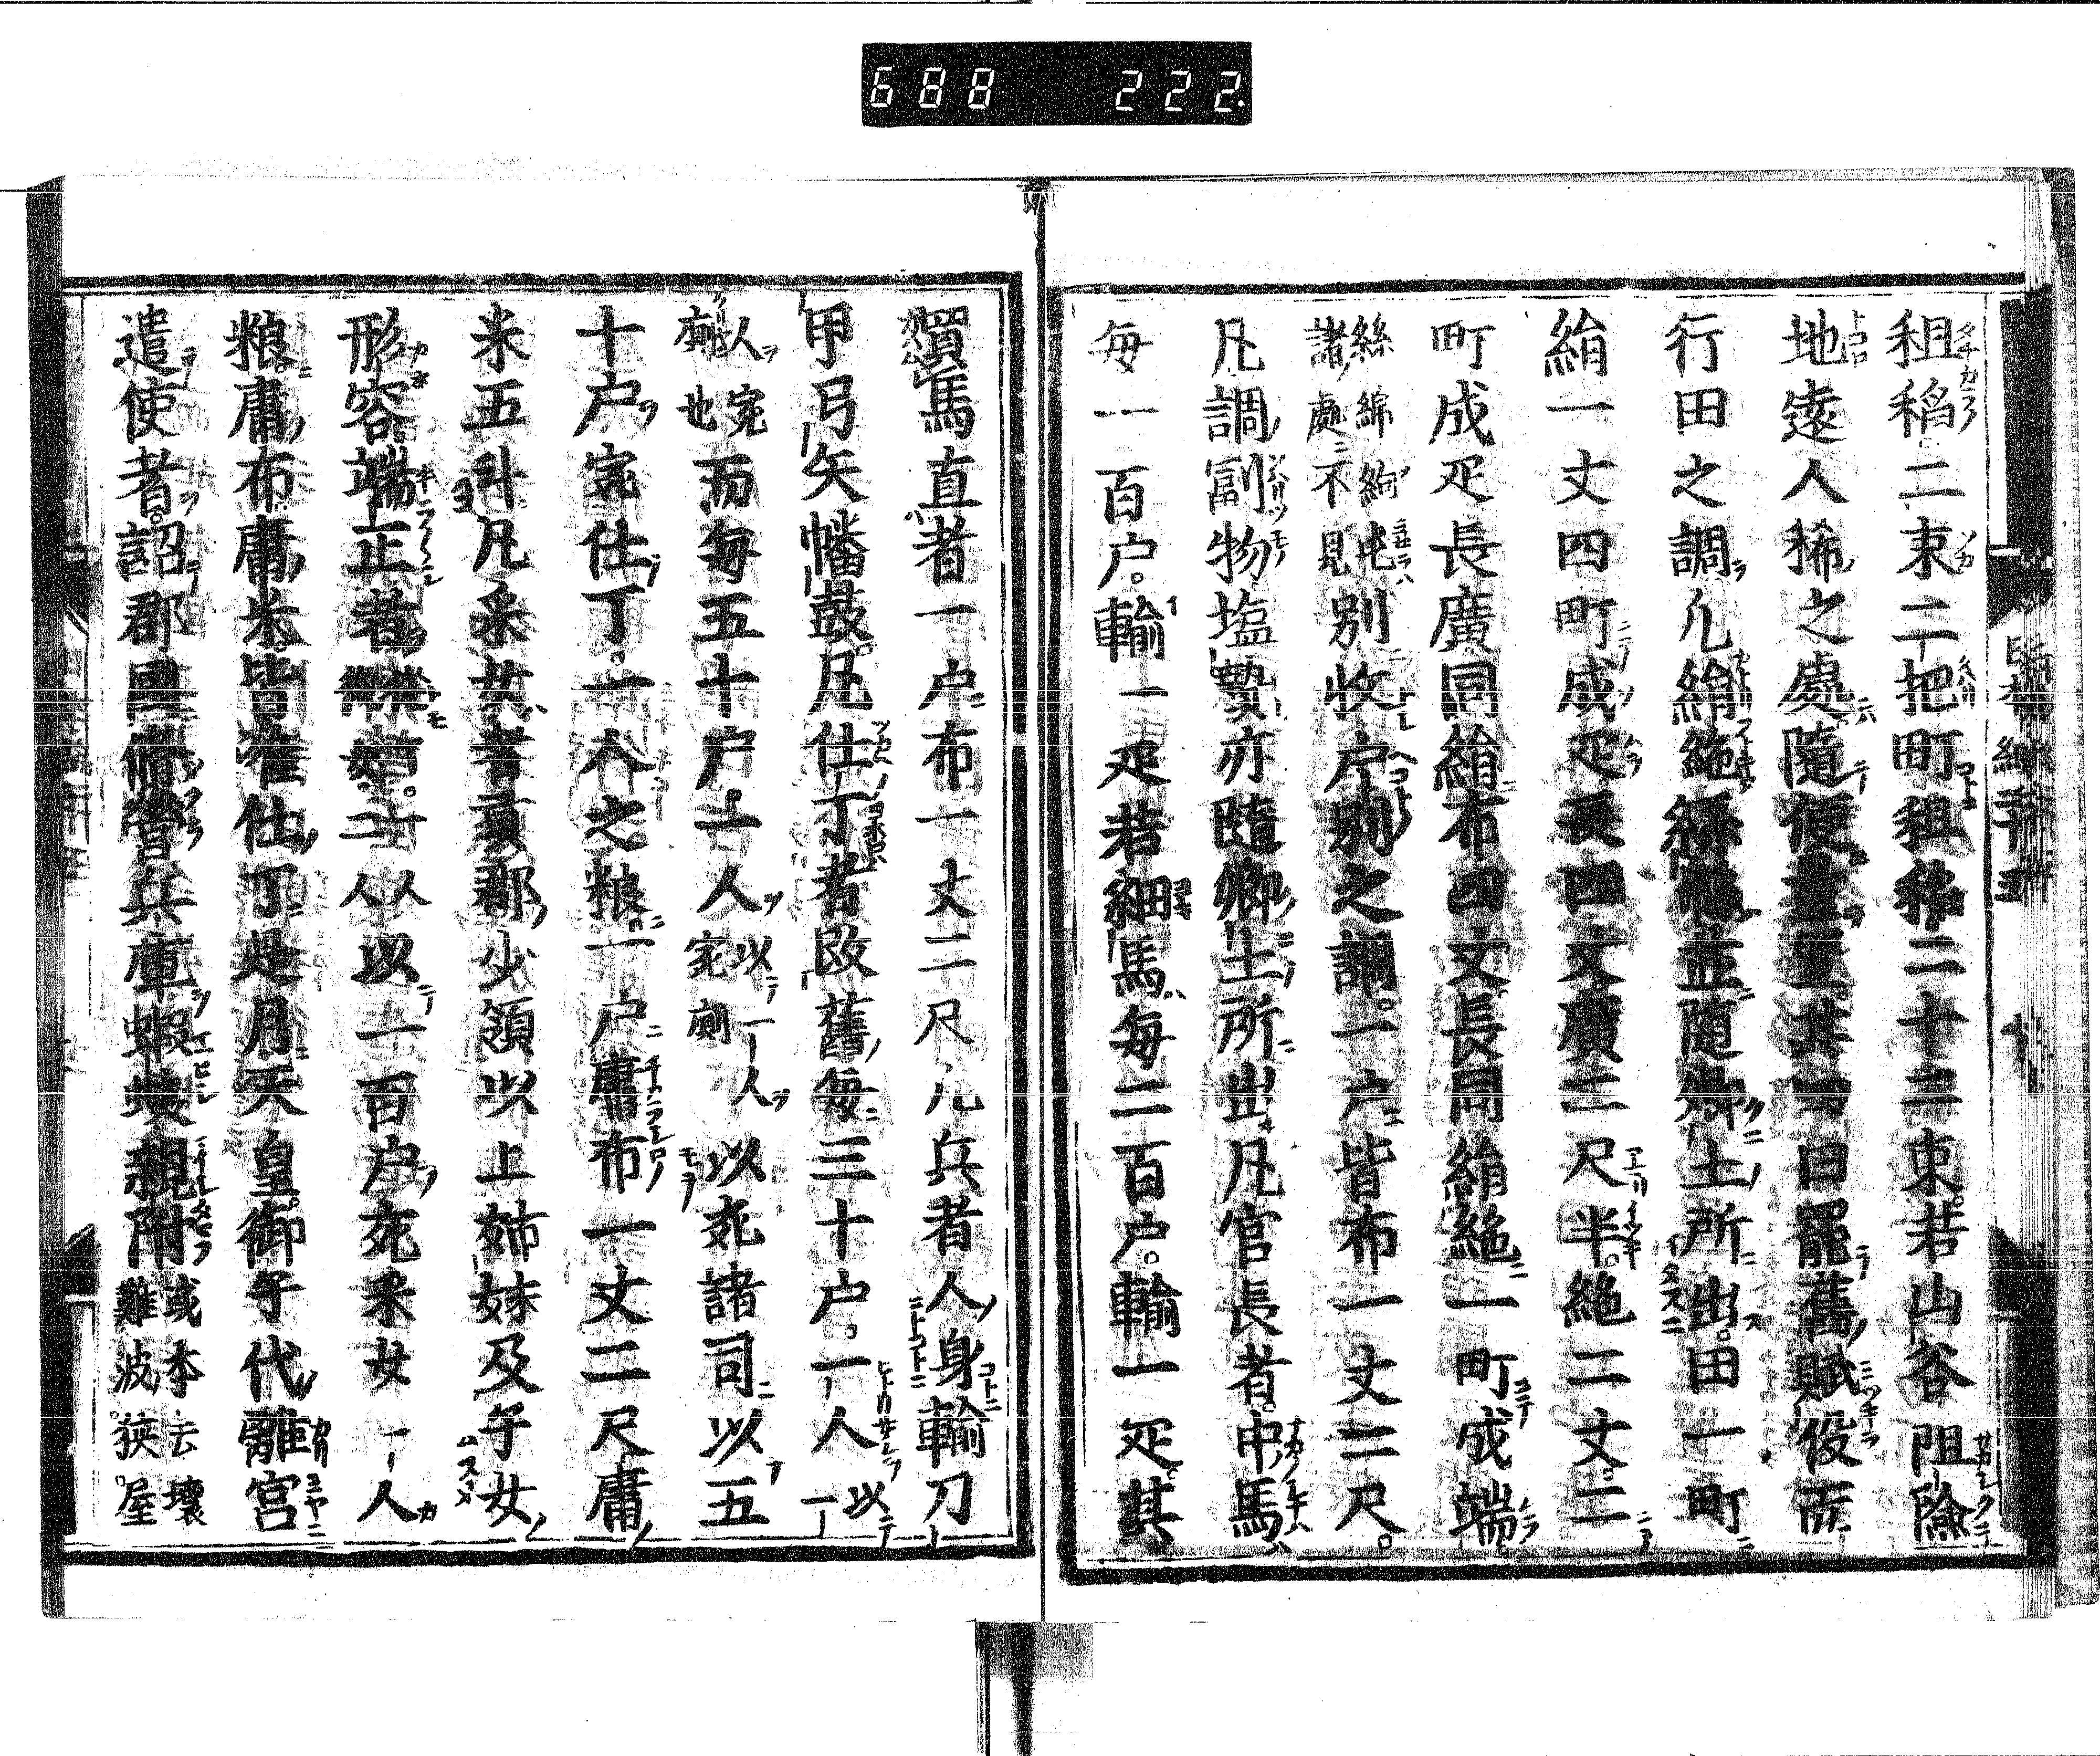 688 222
租稻二束二把町租稻二十二束若山谷阻險
地遠人稀之處隨便量置其四曰罷舊賦役而
行田之調凡絹絁絲綿並随鄉土所出田一町
絹一丈四町成疋長四丈廣二尺半絁二丈二
町成疋長廣同絹布四丈長同絹絁一町成端
絲綿絇屯諸處不見別收戸別之調一戸皆布一丈二尺
凡調副物塩贄亦隨鄉土所出凡官長者中馬
每一百戸輸一疋若細馬每二百戸輸一疋其
買馬直者一戸布一丈二尺凡兵者人身輸刀
甲弓矢幡鼓凡仕丁者改舊每三十戸一人以一
人充廝也而每五十戸一人以一人充廝以充諸司以五
十戸充仕丁一人之粮一戸庸布一丈二尺庸
米五斗凡采女者貢郡少領以上姉妹及子女
形容端正者從丁一人從女二人以一百戸充采女一人
粮庸布庸米皆准仕丁是月天皇御子代離宮
遣使者詔郡國修營兵庫蝦夷親附或本云壞難波狹屋